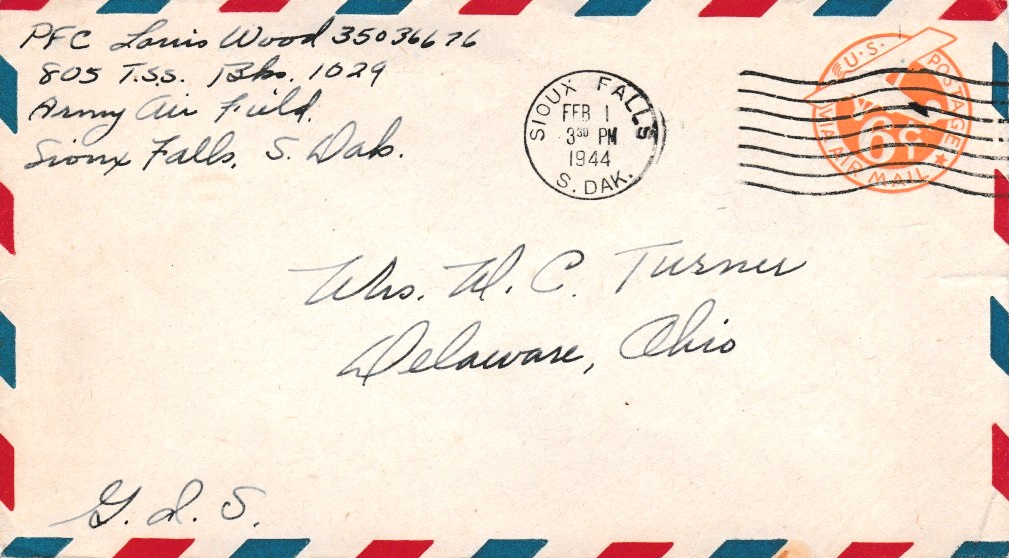 PFC Louis Wood 35036676
805 T.S.S. Bks. 1029
Army Air Field.
Sioux Falls, S. Dak.
SIOUX FALLS
FEB 1
3 30 PM
1944
S. DAK.
U.S. POSTAGE
6¢
VIA AIR MAIL
Mrs. W. C. Turner
Delaware, Ohio
G. I. S.